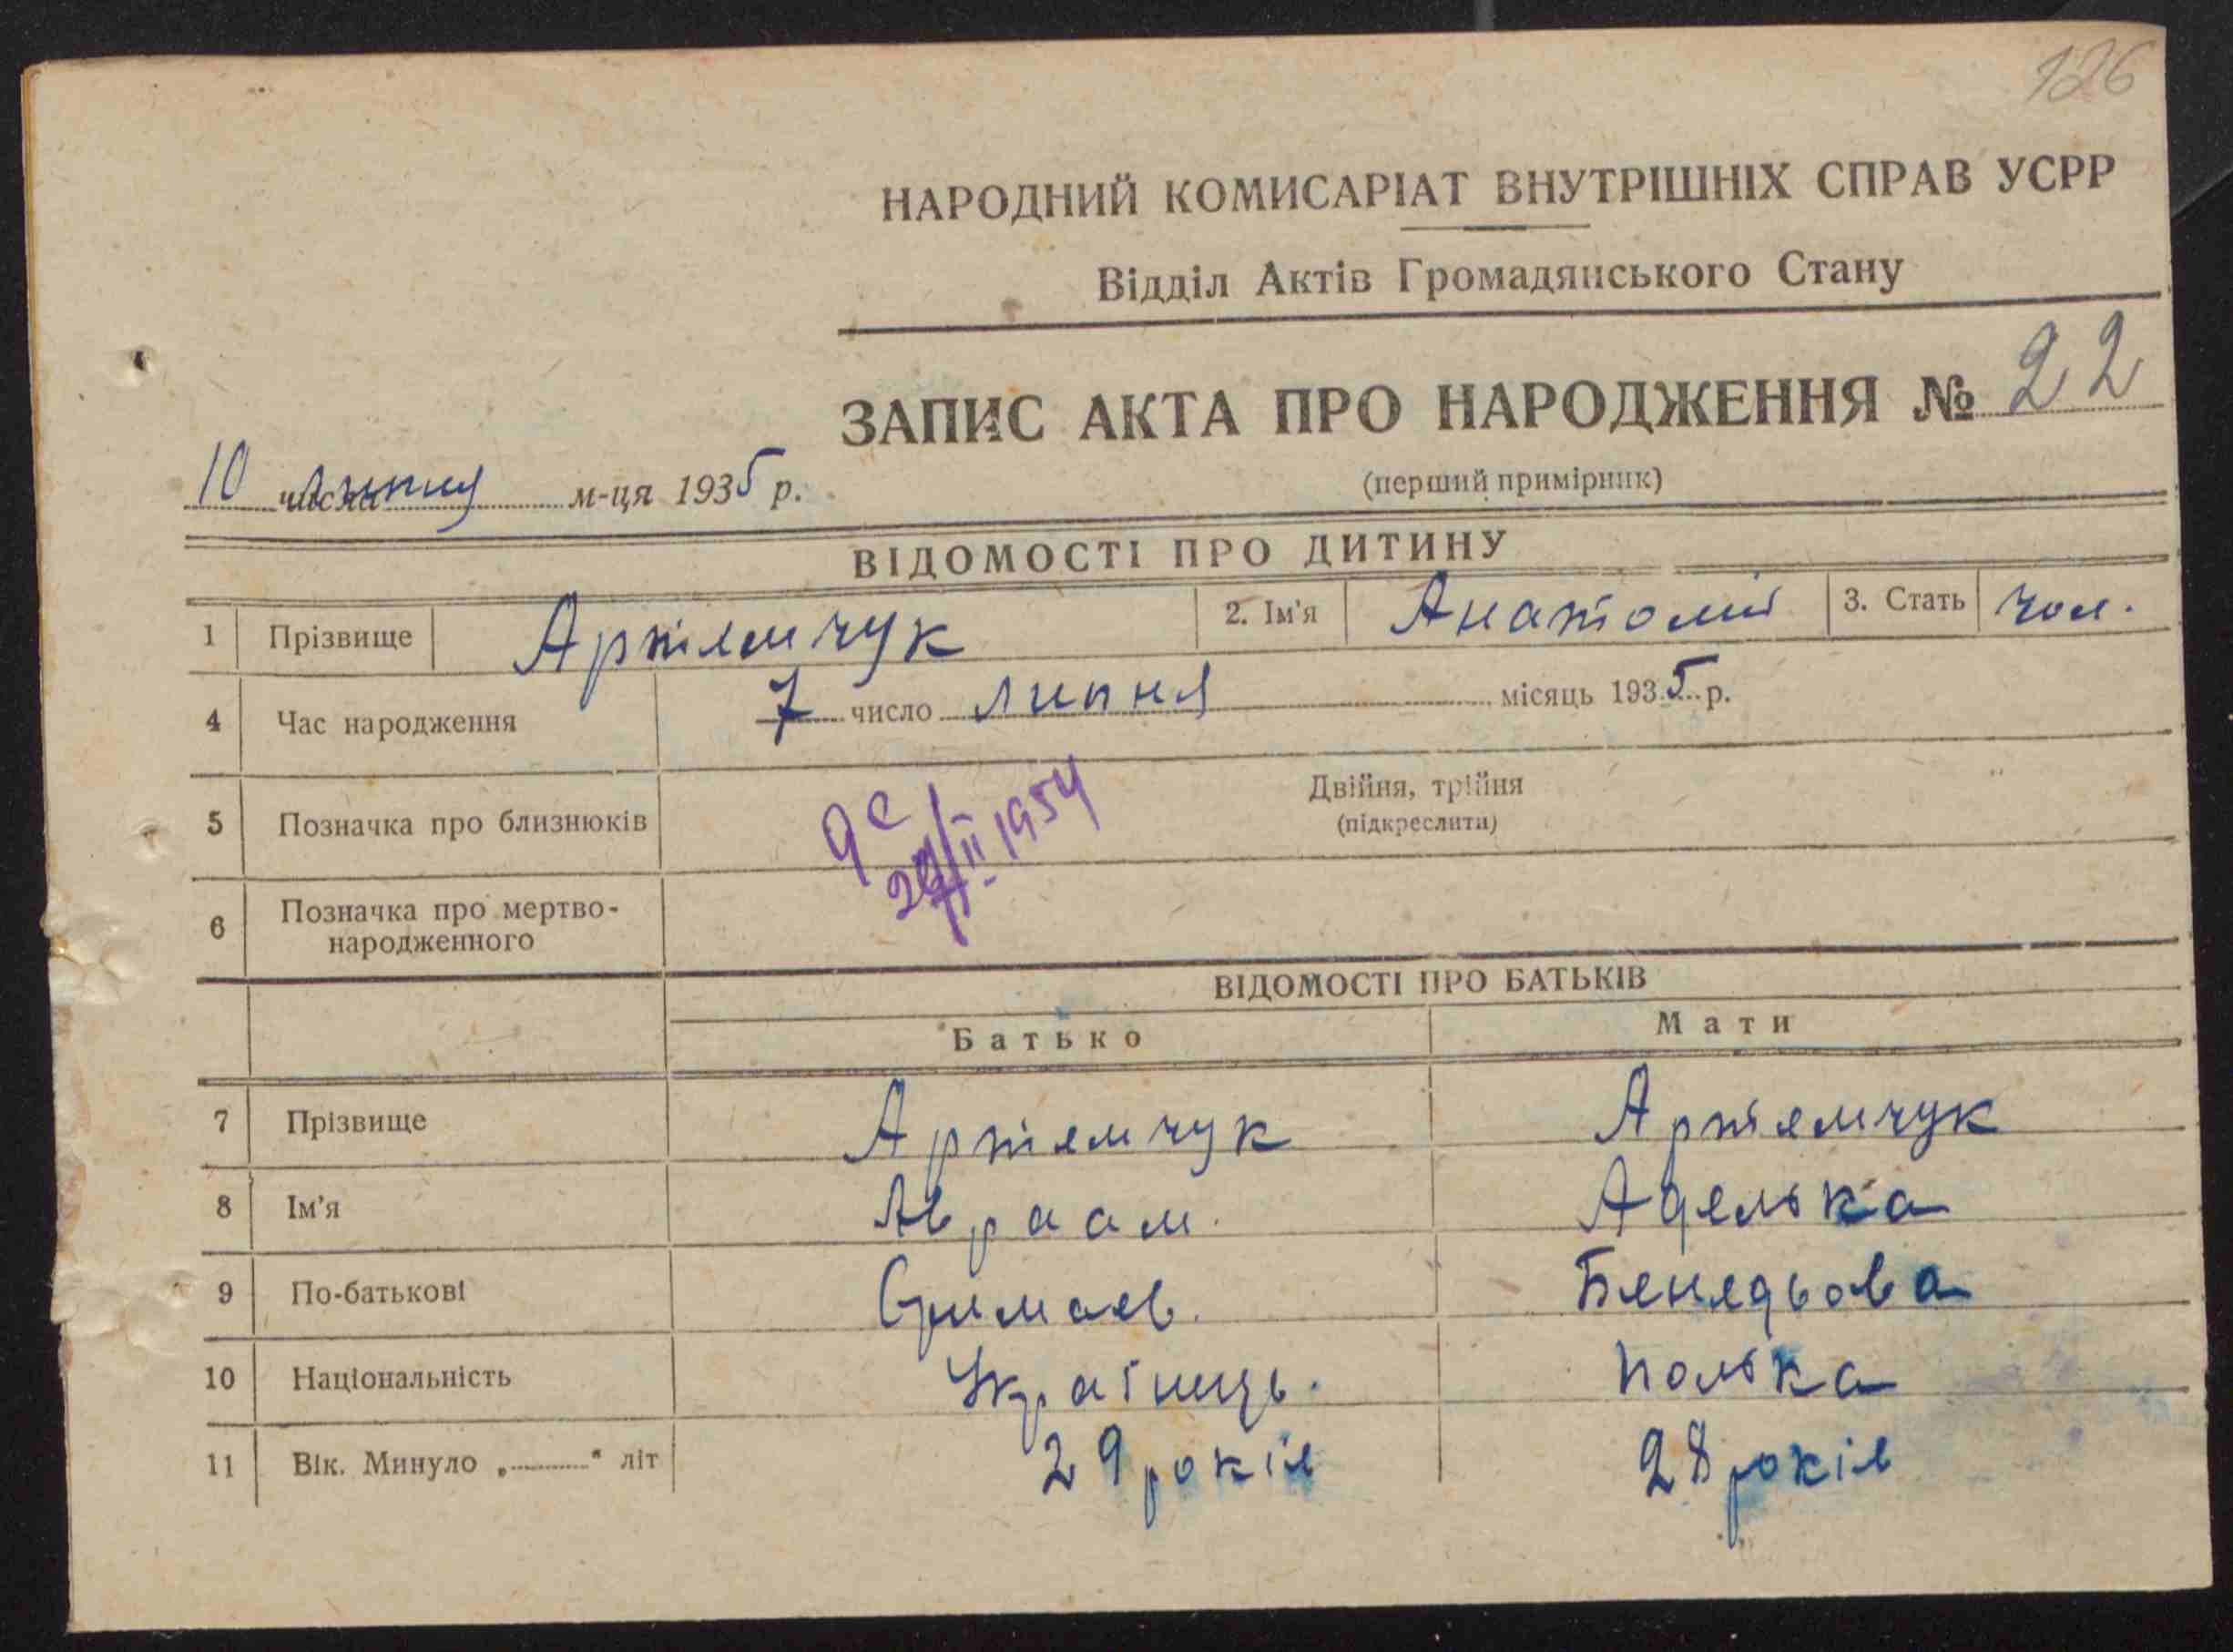 126
НАРОДНИЙ КОМИСАРІАТ ВНУТРІШНІХ СПРАВ УСРР
Відділ Актів Громадянського Стану
ЗАПИС АКТА ПРО НАРОДЖЕННЯ № 22
(перший примірник)
10 числа липня м-ця 1935 р.
ВІДОМОСТІ ПРО ДИТИНУ
1 Прізвище Артемчук 2. Ім'я Анатолій 3. Стать чол.
4 Час народження 7 число липня місяць 1935 р.
5 Позначка про близнюків Двійня, трійня
(підкреслити)
II 1954
6 Позначка про мертво-
народженного
ВІДОМОСТІ ПРО БАТЬКІВ
Батько Мати
7 Прізвище Артемчук Артемчук
8 Ім'я Авраам. Аделька
9 По-батькові
10 Національність Українець. полька
11 Вік. Минуло „ “ літ 29 років 28 років